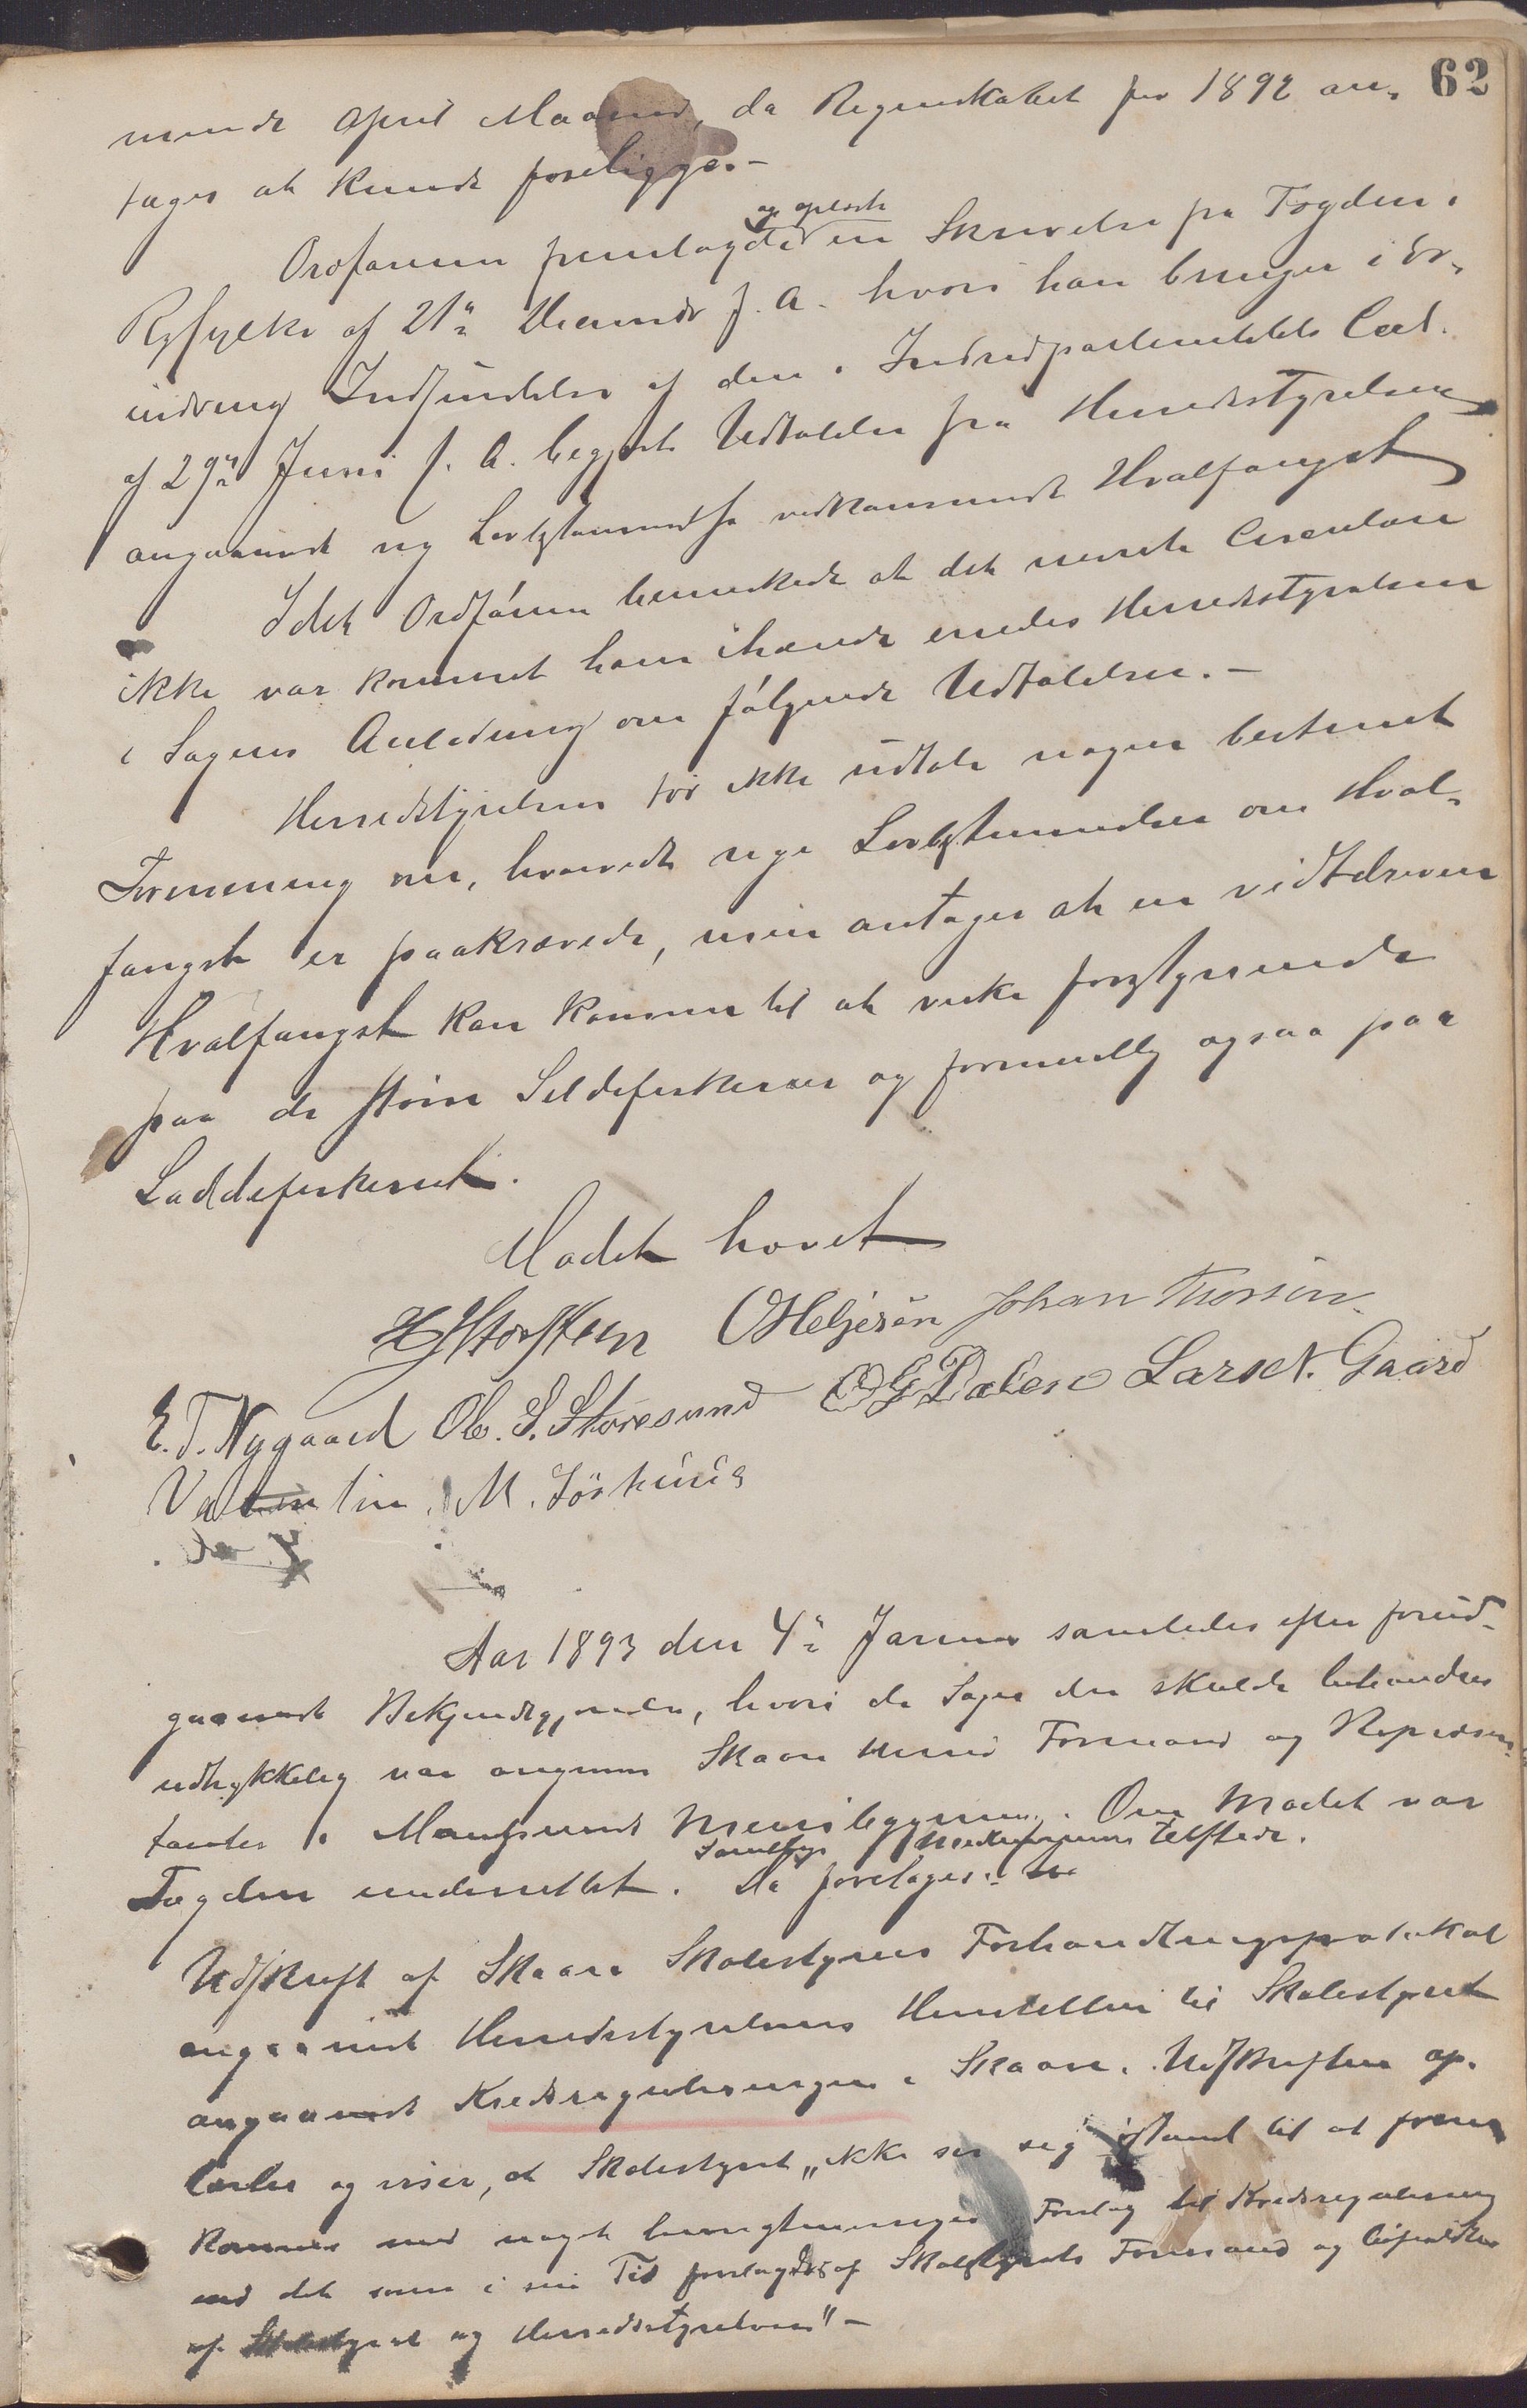 62
mende April Maaned, da Regnskabet for 1892 an-
tages at kunde foreligge.-
og oplæste
Ordføreren fremlagde en Skrivelse fra Fogden i
Ryfylke af 21de f. A. hvori han bringer i Er-
indring Indsendelse af den i Indredepartementets Circ.
af 29de Juni f. A. begjærte Udtalelse fra Herredsstyrelsen
angaaende ny Lovbestemmelse vedkommende Hvalfangst
Idet Ordføreren bemerkede at det nevnte Circulære
ikke var kommet ham ihænde enedes Herredsstyrelsen
i Sagens Anledning om følgende Udtalelse.-
Herredstyrelsen tør ikke udtale nogen bestemt
Formening om, hvorvidt nye Lovbestemmelser om Hval-
fangst er paakrævede, men antager at en vidtdreven
Hvalfangst kan komme til at virke forstyrrende
paa de større Sildefiskerier og formentlig ogsaa paa
Loddefiskeriet.
Mødet hævet
Storsteen O Helgesen Johan Thorsen
E. T. Nygaard Ole. S. Storesund O G Dalen Lars N. Gaard
Valentin M.
Aar 1893 den 4de Januar samledes efter forud-
gaaende Bekjendtgjørelse, hvori de Sager der skulde behandles
udtrykkelig var angivne Skaare Herreds Formænd og Repræsen-
tanter i Haugesunds . Om Mødet var
Fogden underrettet. Da foretoges:
Samtlige Medlemmer tilstede.
Udskrift af Skaare Skolestyres Forhandlingsprotokol
angaaende Herredsstyrelsens Henstillen til Skolestyret
angaaende Kredsreguleringen i Skaare. Udskriften op-
læstes og viser, at Skolestyret „ikke ser sig istand til at frem
komme med noget hensigtsmæssigere Forslag til Kredsregulering
end det som i sin Tid forelagdes af Skolestyrets Formand og
af Skolestyret og Herredsstyrelsen" -